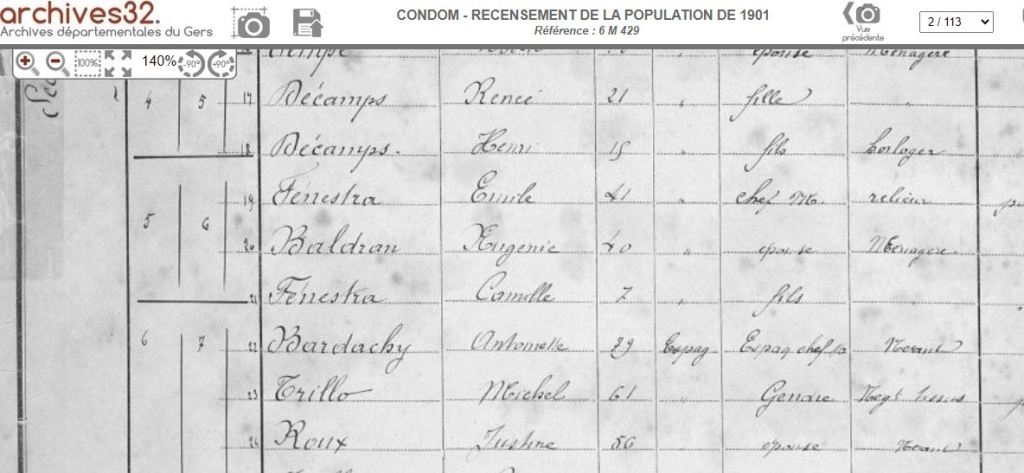 archives32.
Archives départementales du Gers
CONDOM - RECENSEMENT DE LA POPULATION DE 1901
Référence : 6 M 429
Vue précédente
2 / 113
100% 140% -90° +90°
épouse Ménagère
4 5 17 Décamps Renée 21 " fille "
18 Décamps. Henri 15 " fils horloger
5 6 19 Fénestra Emile 41 " chef M. relieur
20 Baldran Eugenie 40 " épouse Ménagère
21 Fénestra Camille 7 " fils "
6 7 22 Bardachy Antoinette Espag Espag chef Neant
23 Trillo Michel 61 " Gendre Negt tissus
24 Roux Justine 56 épouse Neant